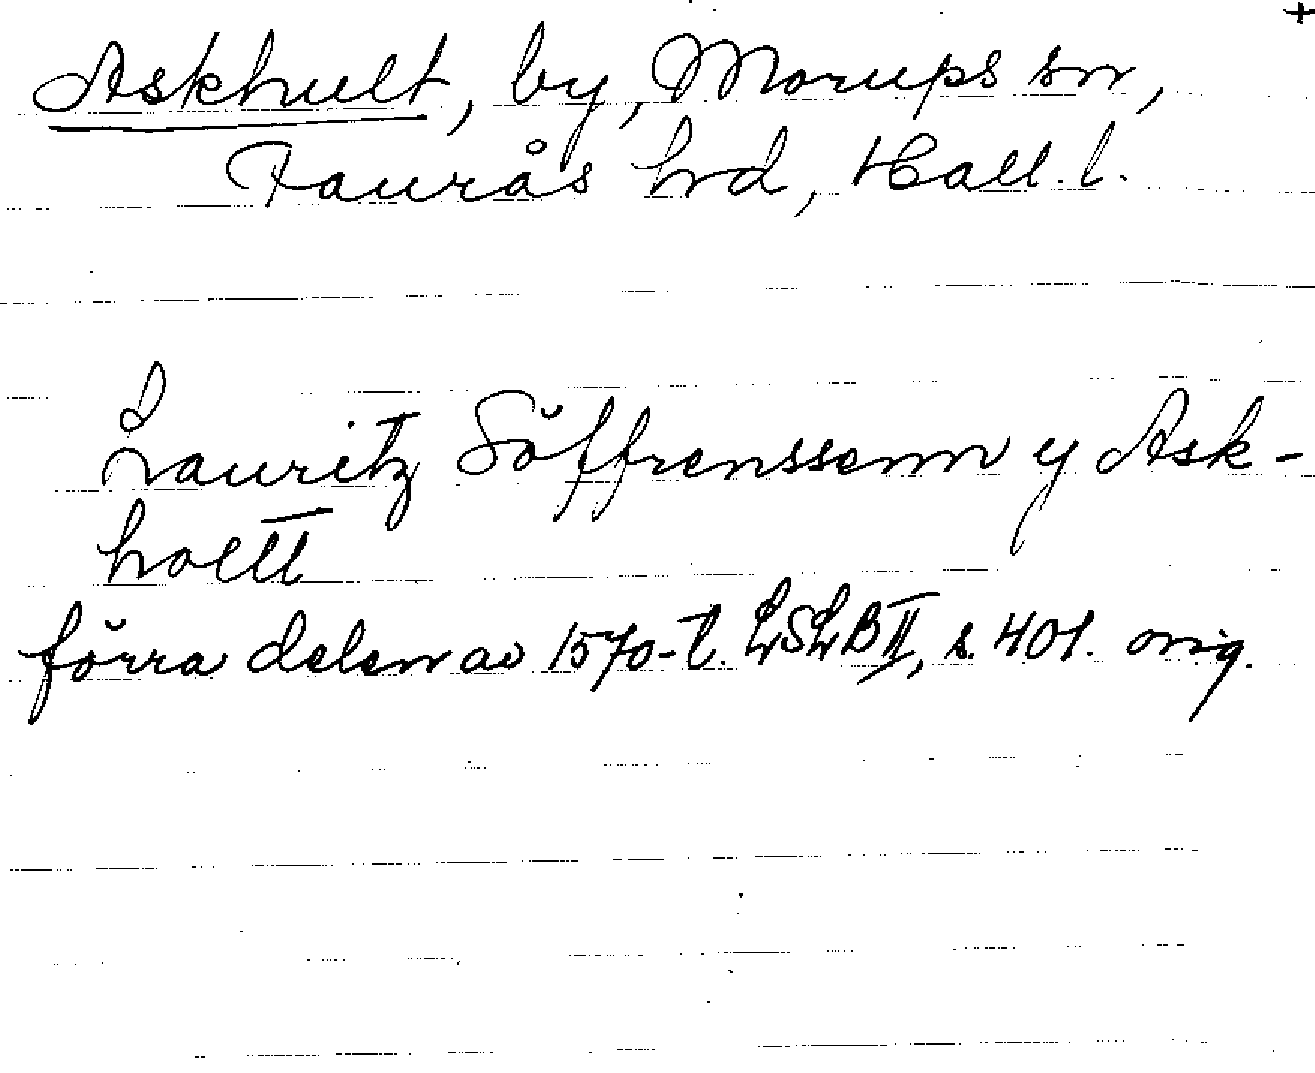 +
Askhult, by, Morups sn,
Faurås hd, Hall. l.
Lauritz Söffrenssenn y Ask-
holtt
förra delen av 1570-t. LSLB II, s. 401. orig.